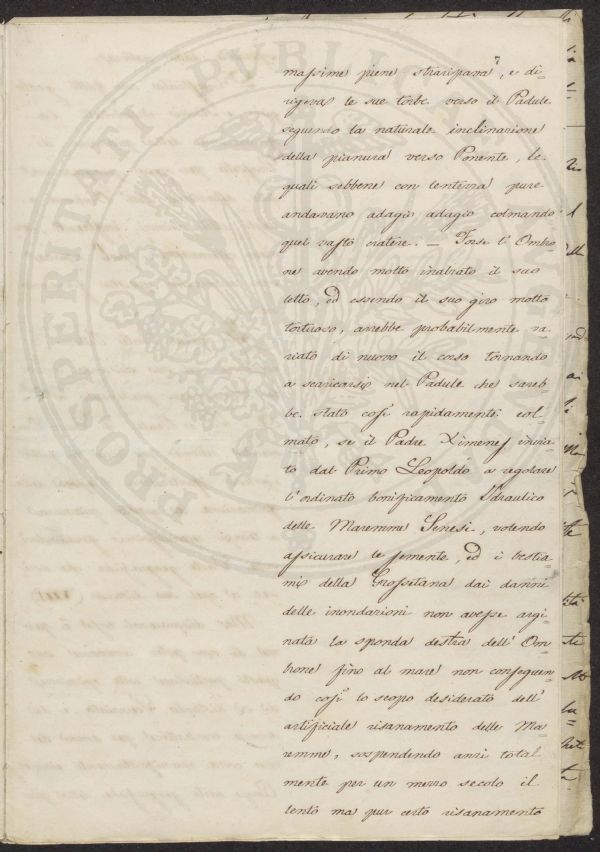 7
massime piene straripava, e di-
rigeva le sue torbe verso il Padule
seguendo la naturale inclinazione
della pianura verso Ponente, le
quali sebbene con lentezza pure
andavano adagio adagio colmando
quel vasto cratere. — Forse l'Ombro-
ne avendo molto inalzato il suo
letto, ed essendo il suo giro molto
tortuoso, avrebbe probabilmente va-
riato di nuovo il corso tornando
a scaricarsi nel Padule che sareb-
be stato così rapidamente col-
mato, se il Padre Ximenes invia-
to dal Primo Leopoldo a regolare
l'ordinato bonificamento Idraulico
delle Maremme Senesi, volendo
assicurare le semente, ed i bestia-
mi della Grossetana dai danni
delle inondazioni non avesse argi-
nata la sponda destra dell'Om-
brone fino al mare non conseguen-
do così lo scopo desiderato dell'
artificiale risanamento delle Ma-
remme, sospendendo anzi total
mente per un mezzo secolo il
lento ma pur certo risanamento
PROSPERITATI PVBLICAE